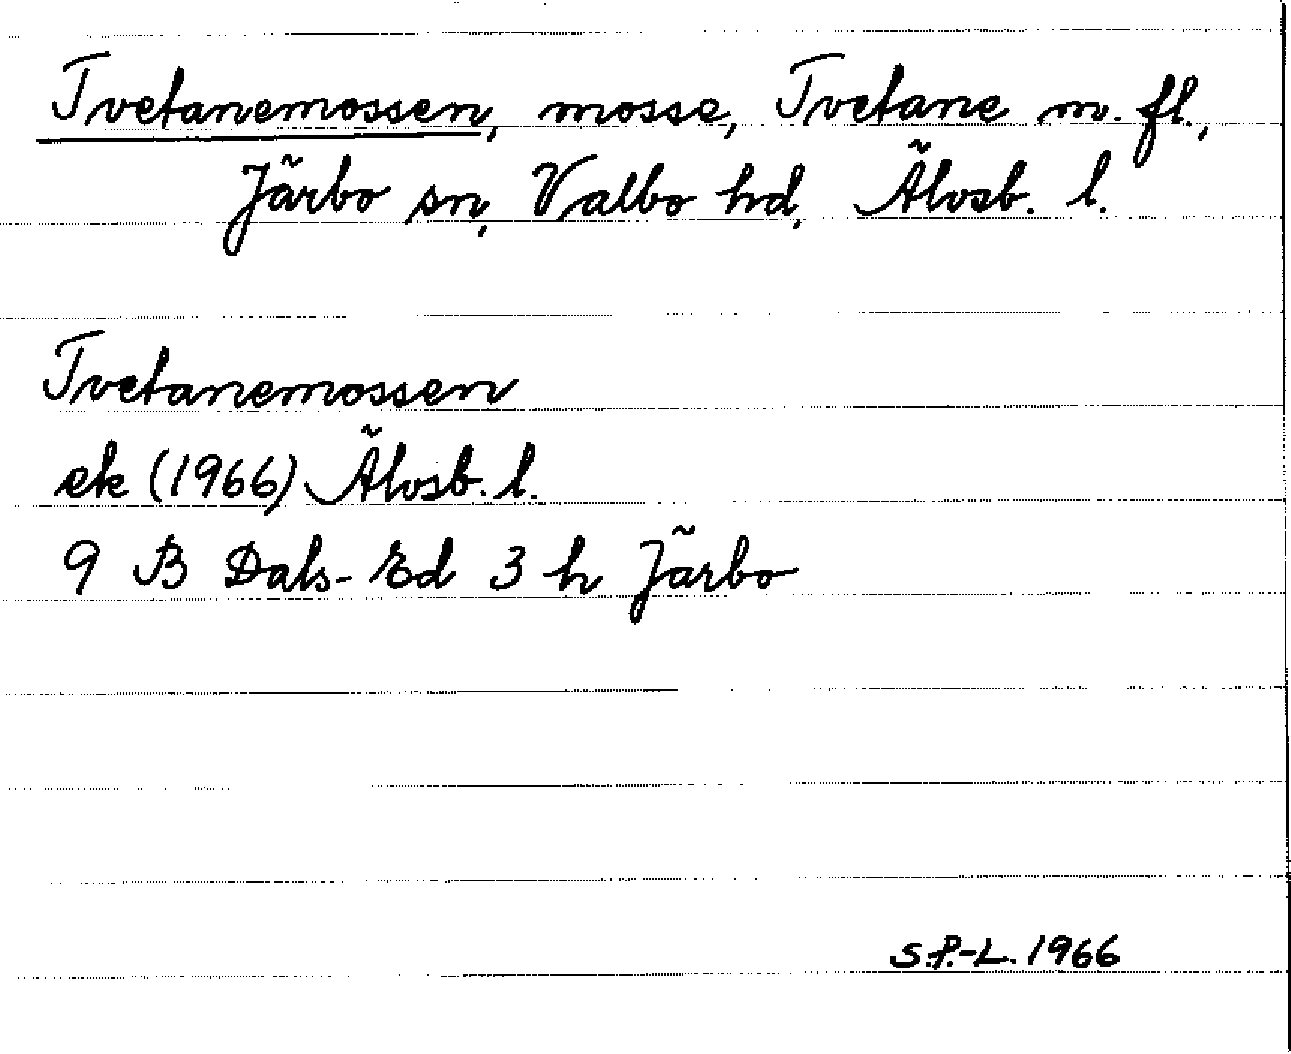 Tvetanemossen, mosse, Tvetane m. fl.,
Järbo sn, Valbo hd, Älvsb. l.
Tvetanemossen
ek (1966) Älvsb. l.
9 B Dals-Ed 3 h Järbo
S.P.-L. 1966